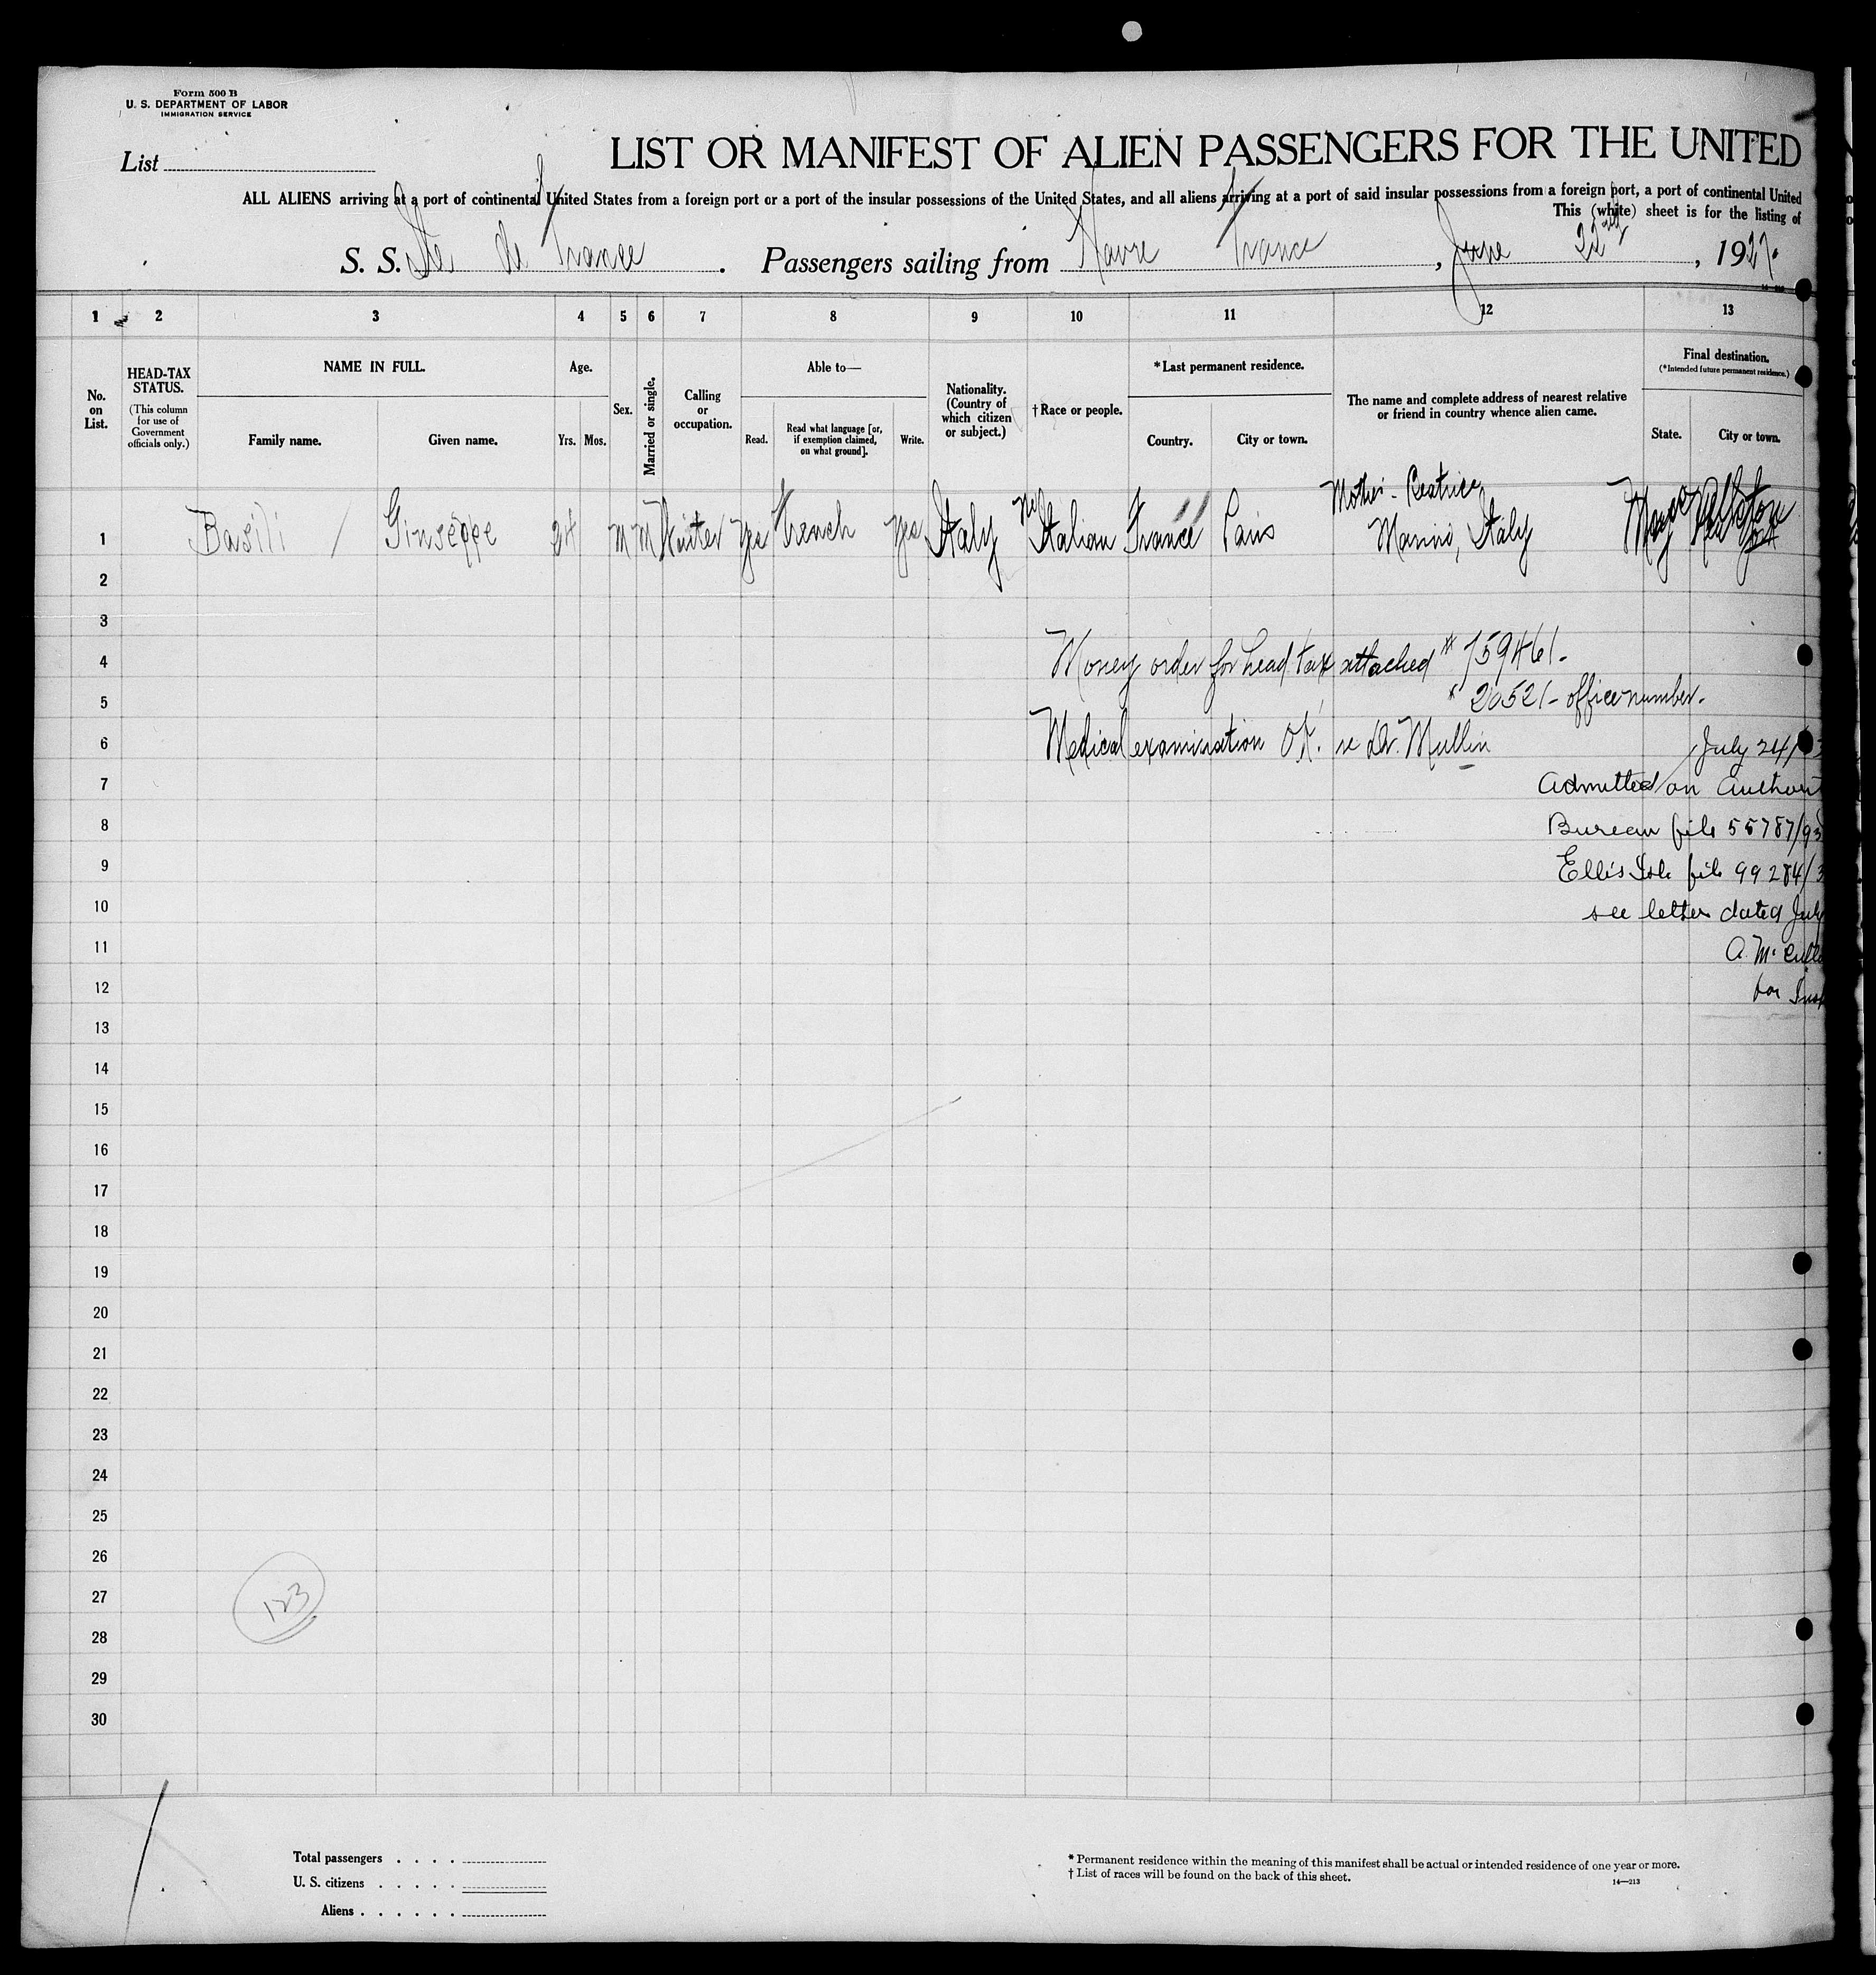 Form 500 B
U. S. DEPARTMENT OF LABOR
IMMIGRATION SERVICE
List
LIST OR MANIFEST OF ALIEN PASSENGERS FOR THE UNITED
ALL ALIENS arriving at a port of continental United States from a foreign port or a port of the insular possessions of the United States, and all aliens arriving at a port of said insular possessions from a foreign port, a port of continental United
This (white) sheet is for the listing of
S. S. de France. Passengers sailing from Havre France, June 22nd, 1927.
1 2 3 4 5 6 7 8 9 10 11 12 13
No. on List.
HEAD-TAX STATUS.
(This column for use of Government officials only.)
NAME IN FULL.
Family name.
Given name.
Age.
Yrs. Mos.
Sex.
Married or single.
Calling or occupation.
Able to—
Read.
Read what language [or, if exemption claimed, on what ground].
Write.
Nationality. (Country of which citizen or subject.)
†Race or people.
*Last permanent residence.
Country.
City or town.
The name and complete address of nearest relative or friend in country whence alien came.
Final destination.
(*Intended future permanent residence.)
State.
City or town.
Mother - Beatrice
1 Basili / Giuseppe 24 M M Yes French Yes Italy Italian France Paris Marino, Italy
2
3
4 Money order for head tax attached # 759461-
5 # 20521- office number.
6 Medical examination OK. Dr. Mullin
July 24/
7 Admitted on
8 Bureau file 55787/93
9 Ellis Isle file 99284/3
10 see letter dated July
11 A. Mc
12 for
13
14
15
16
17
18
19
20
21
22
23
24
25
26
27 123
28
29
30
Total passengers . . . .
U. S. citizens . . . . .
Aliens . . . . . .
* Permanent residence within the meaning of this manifest shall be actual or intended residence of one year or more.
† List of races will be found on the back of this sheet.
14—213